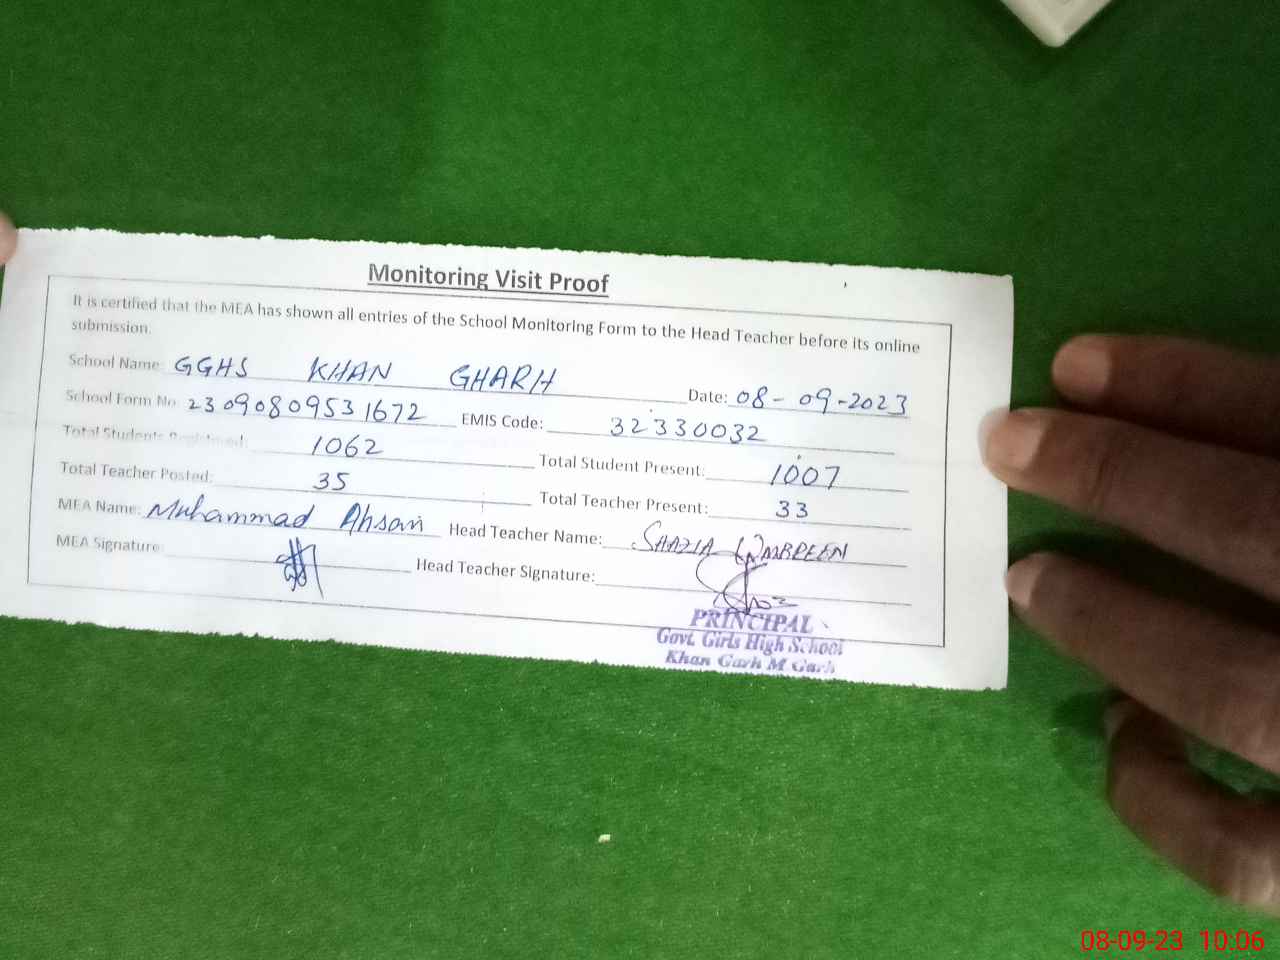 Monitoring Visit Proof
It is certified that the MEA has shown all entries of the School Monitoring Form to the Head Teacher before its online
submission.
School Name: GGHS KHAN GHARH Date: 08-09-2023
School Form No. 23090809531672 EMIS Code: 32330032
Total Students Registered: 1062 Total Student Present: 1007
Total Teacher Posted: 35 Total Teacher Present: 33
MEA Name: Muhammad Ahsan Head Teacher Name: SHAZIA AMBREEN
MEA Signature: Head Teacher Signature:
PRINCIPAL
Govt. Girls High School
Khan Garh M Garh
08-09-23 10:06